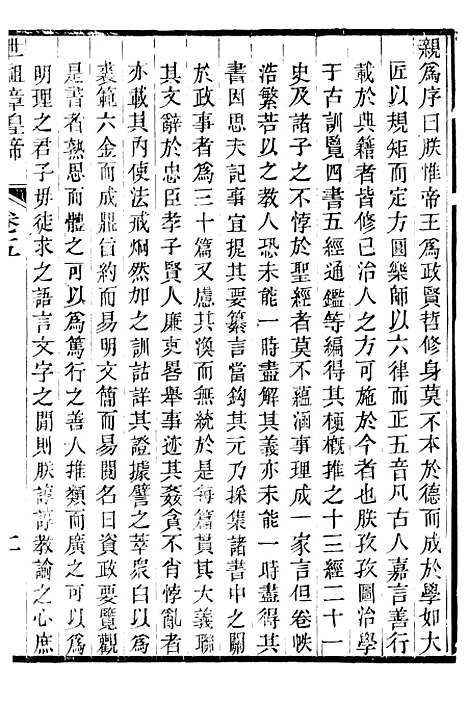 親爲序曰朕惟帝王爲政賢哲修身莫不本於德而成於學如大
匠以規矩而定方圓樂師以六律而正五音凡古人嘉言善行
載於典籍者皆修己治人之方可施於今者也朕孜孜圖治學
于古訓覽四書五經通鑑等編得其梗概推之十三經二十一
史及諸子之不悖於聖經者莫不蘊涵事理成一家言但卷帙
浩繁若以之教人恐未能一時盡解其義亦未能一時盡得其
書因思夫記事宜提其要纂言當鈎其元乃採集諸書中之關
於政事者爲三十篇又慮其渙而無統於是每篇貫其大義聯
其文辭於忠臣孝子賢人廉吏畧舉事迹其姦貪不肖悖亂者
亦載其內使法戒炯然加之訓詁詳其證據譬之萃衆白以爲
裘範六金而成鼎旨約而易明文簡而易閱名曰資政要覽觀
是書者熟思而體之可以爲篤行之善人推類而廣之可以爲
明理之君子毋徒求之語言文字之閒則朕諄諄教諭之心庶
世祖章皇帝 卷五 二